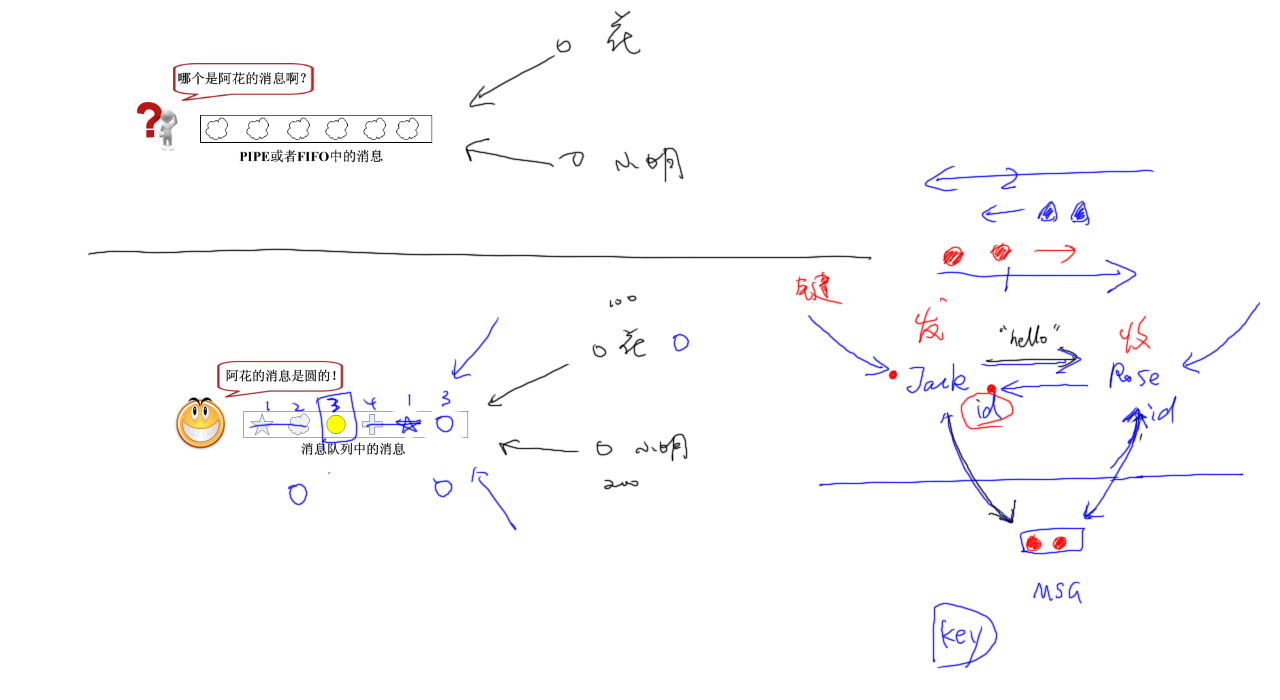 花
哪个是阿花的消息啊?
?
PIPE或者FIFO中的消息
小明
2
100
花
阿花的消息是圆的!
1 2 3 4 1 3
消息队列中的消息
小明
200
发 "hello" 收
Jack Rose
id id
MSG
key